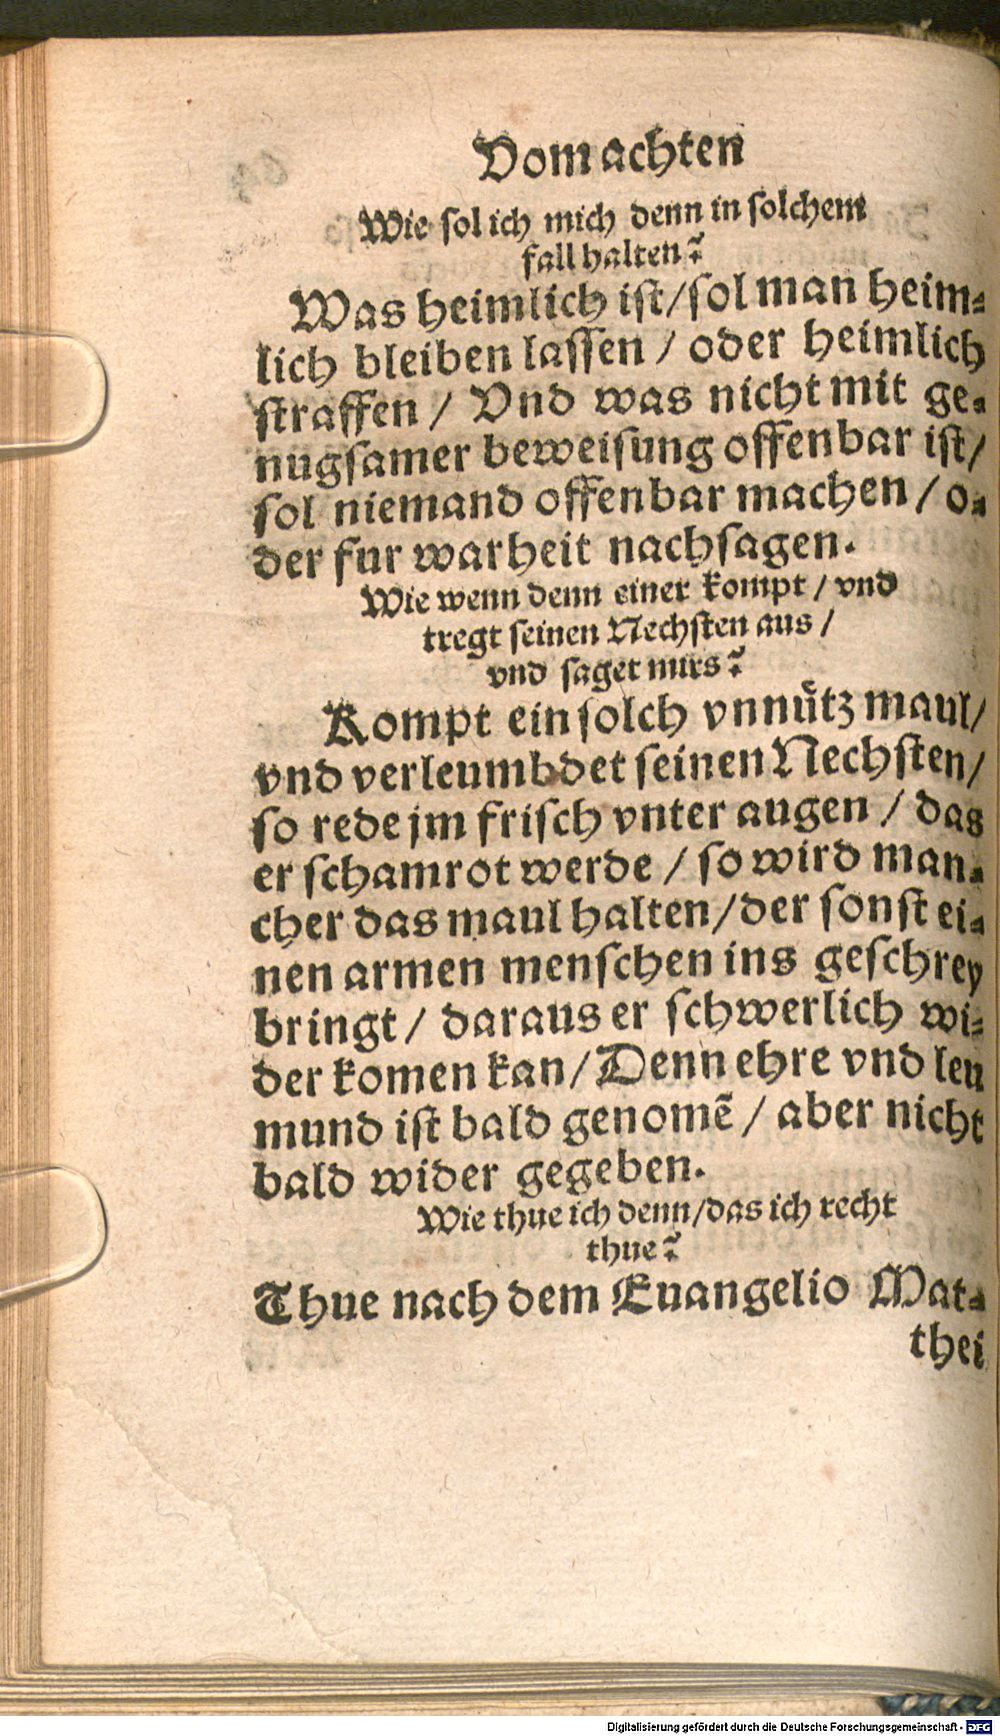 Vom achten
Wie sol ich mich denn in solchem
fall halten?
Was heimlich ist/sol man heim⸗
lich bleiben lassen / oder heimlich
straffen / Vnd was nicht mit ge⸗
nugsamer beweisung offenbar ist/
sol niemand offenbar machen / o⸗
der fur warheit nachsagen.
Wie wenn denn einer kompt / vnd
tregt seinen Nechsten aus /
vnd saget mirs?
Kompt ein solch vnnütz maul/
vnd verleumbdet seinen Nechsten/
so rede jm frisch vnter augen / das
er schamrot werde / so wird man⸗
cher das maul halten/der sonst ei⸗
nen armen menschen ins geschrey
bringt / daraus er schwerlich wi⸗
der komen kan/Denn ehre vnd leu
mund ist bald genomẽ / aber nicht
bald wider gegeben.
Wie thue ich denn/das ich recht
thue?
Thue nach dem Euangelio Mat⸗
thei
Digitalisierung gefördert durch die Deutsche Forschungsgemeinschaft - DFG